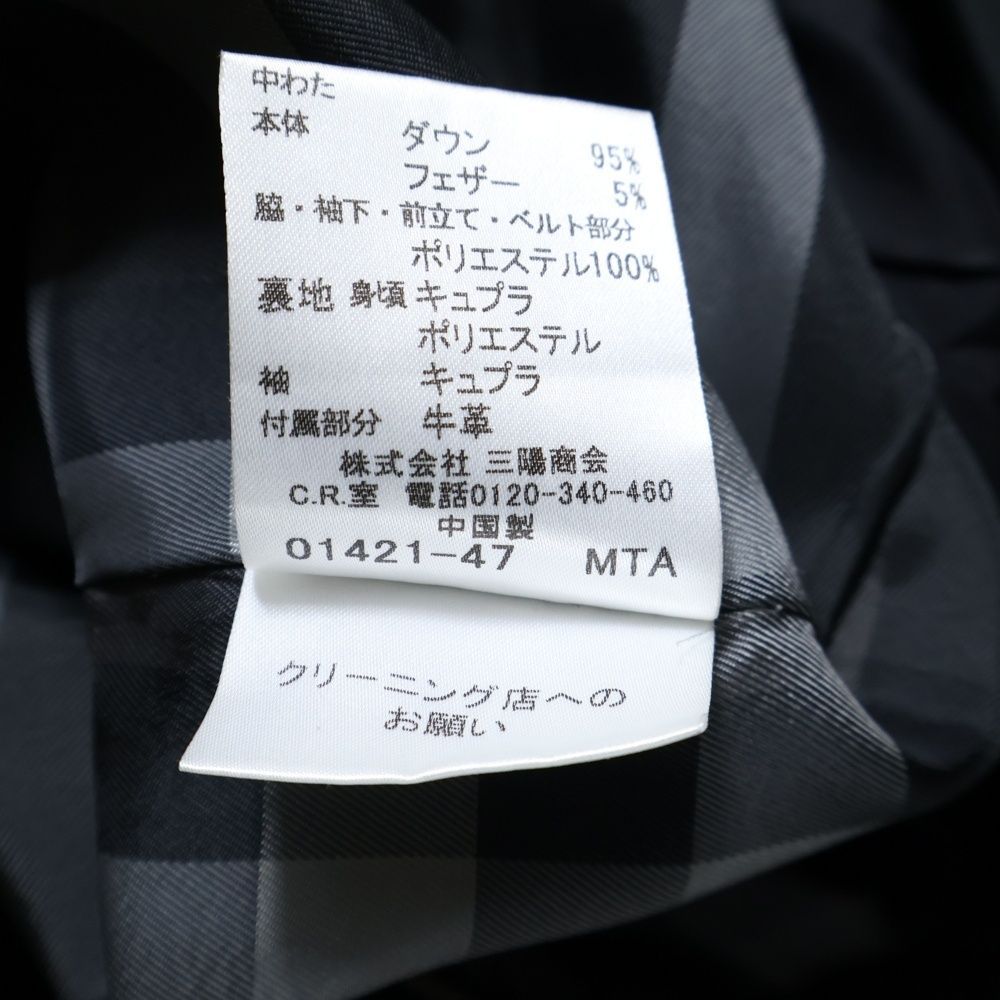 中わた
本体 ダウン 95%
フェザー 5%
脇・袖下・前立て・ベルト部分
ポリエステル100%
裏地 身頃 キュプラ
ポリエステル
袖 キュプラ
付属部分 牛革
株式会社 三陽商会
C.R.室 電話0120-340-460
中国製
01421-47 MTA
クリーニング店への
お願い